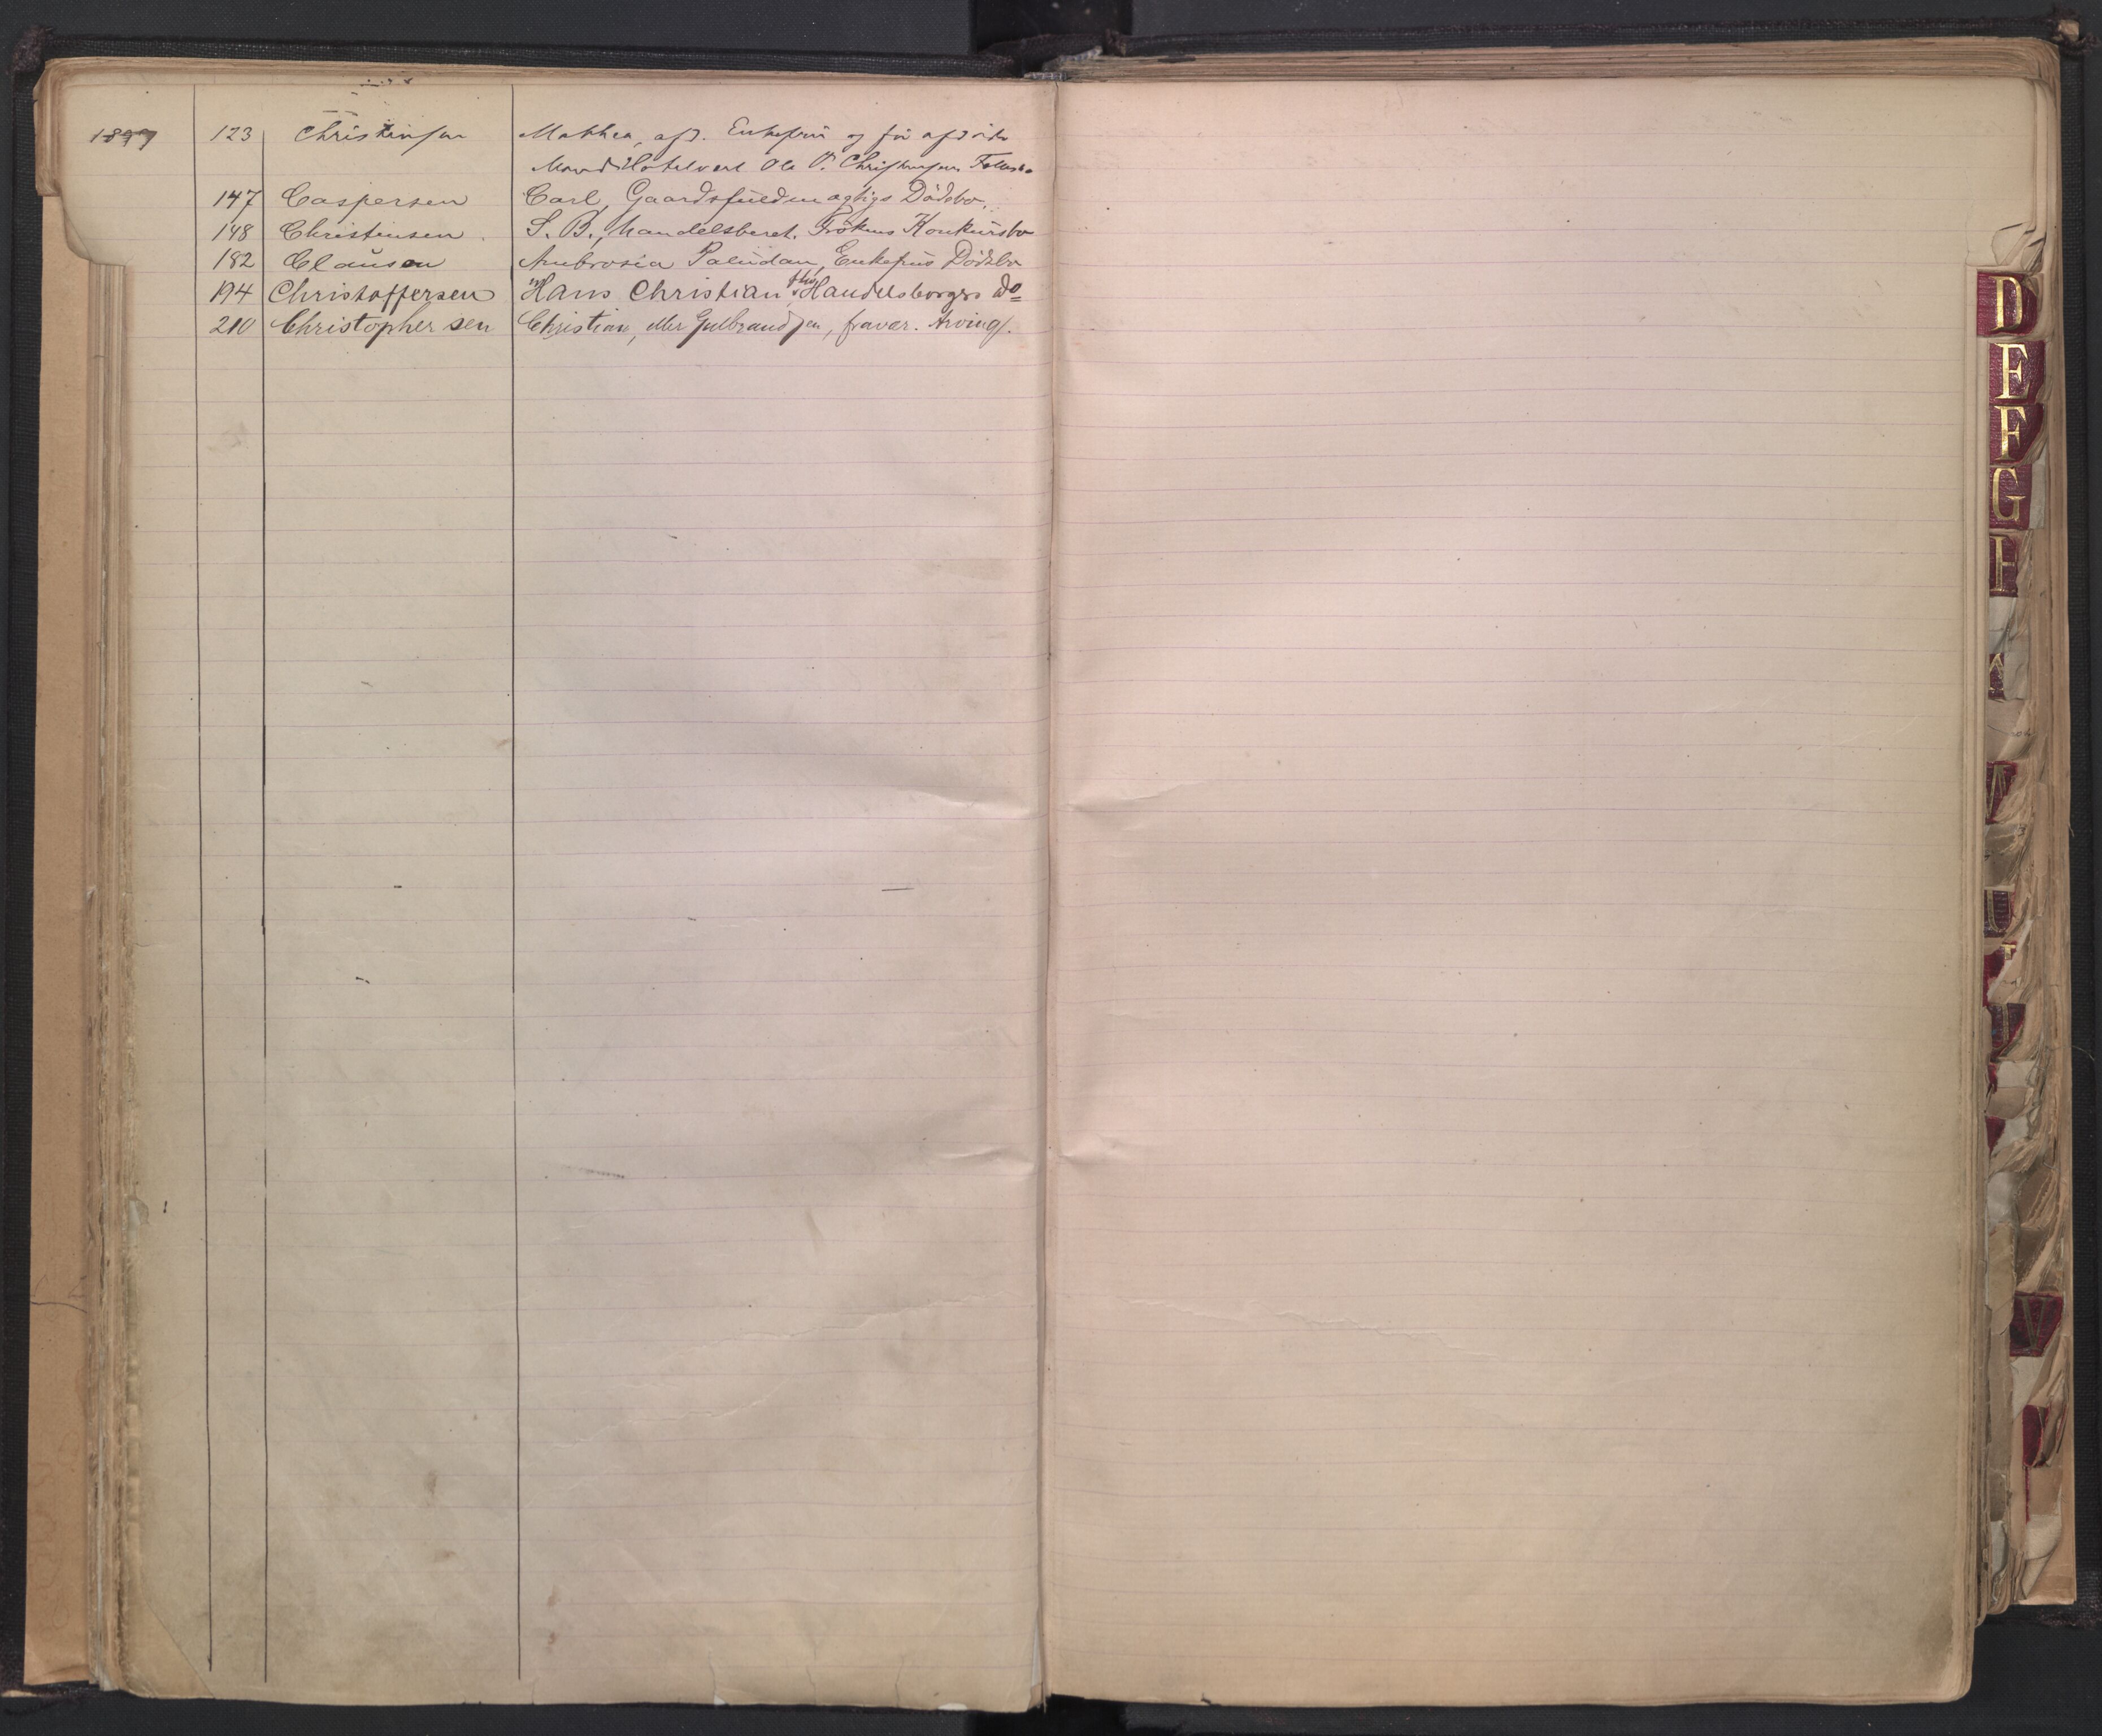 1899 123 Christensen Mathea, afd. Enkefrú og før afdøde
Mand Hotelvert Ole P. Christensen Fællesbo
147 Caspersen Carl, Gaardsfuldmægtigs Dödsbo.
148 Christensen. S. B., handelsberet. Frökens Konkursbo
182 Clausen Ambrosia Paludan, Enkefrus Dödsbo
194 Christoffersen Hans Christian Handelsborgers Do
210 Christophersen Christian, eller Gulbrandsen, fravær. Arving.
D
E
F
G
V